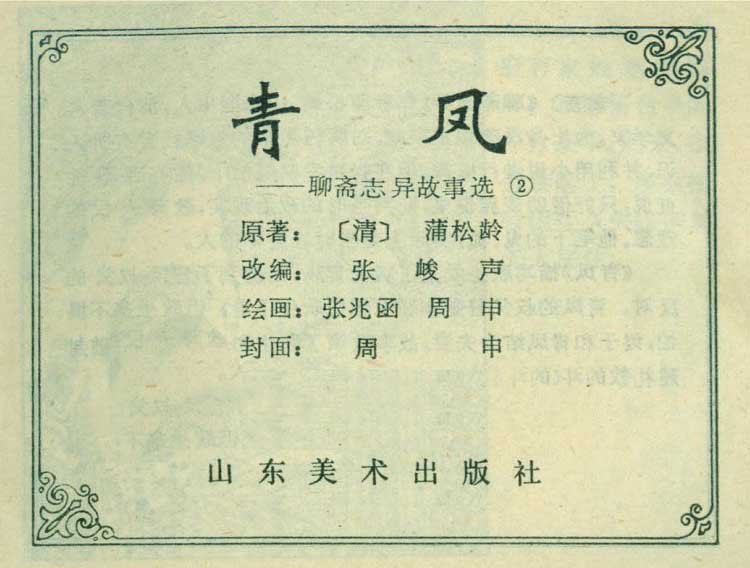 青 凤
——聊斋志异故事选 ②
原著：〔清〕 蒲松龄
改编： 张 峻 声
绘画：张兆函 周 申
封面： 周 申
山东美术出版社